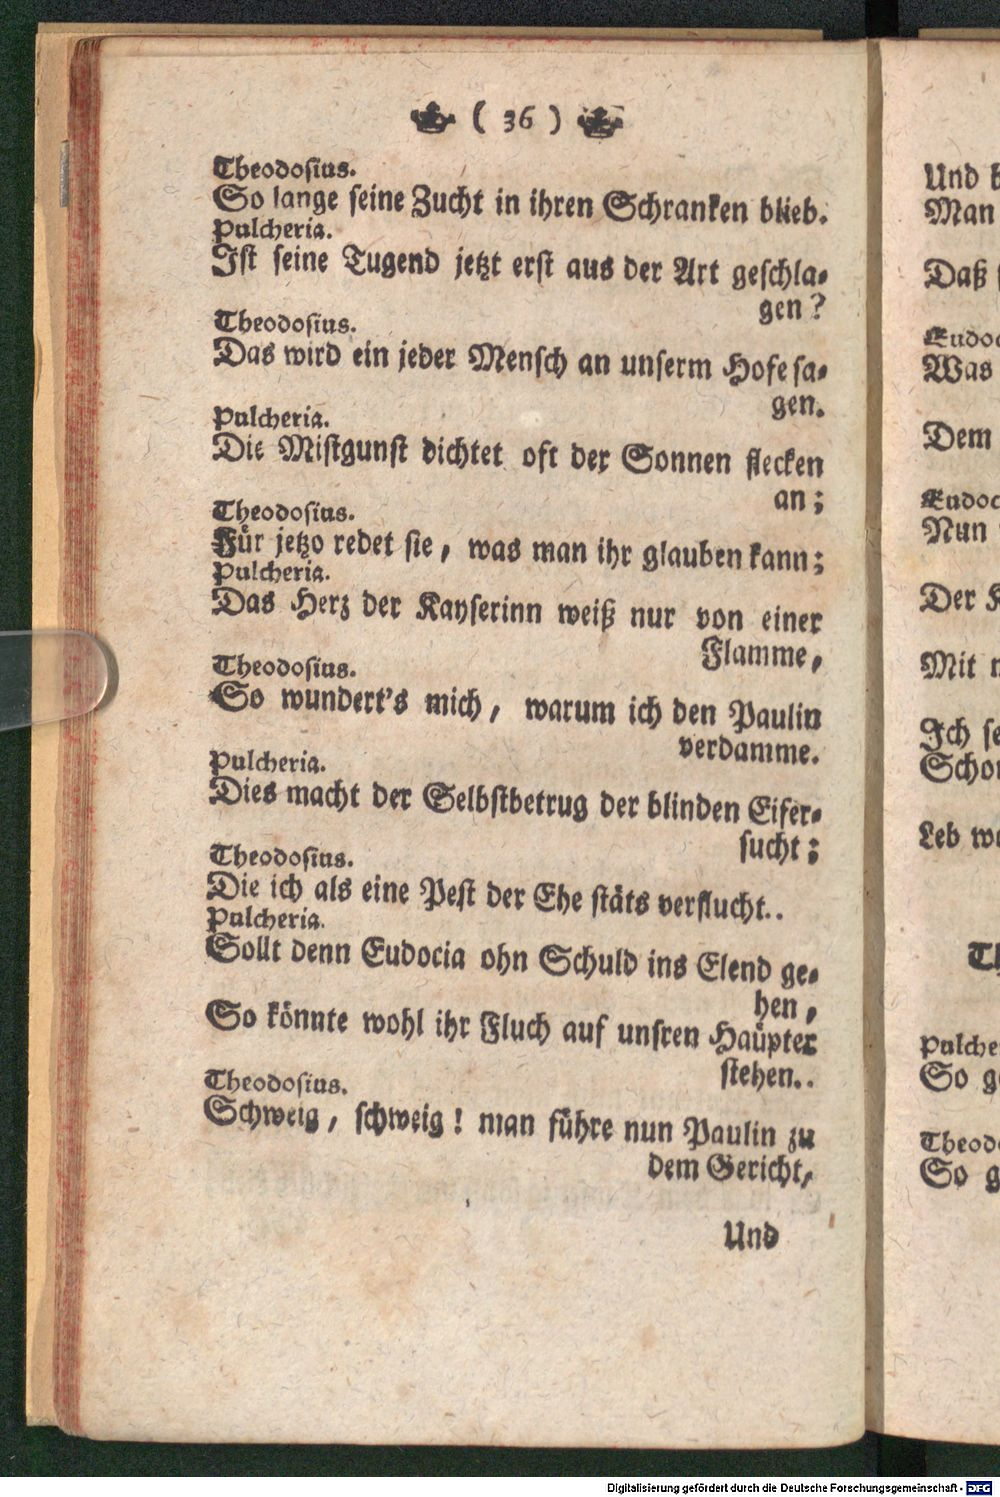 ( 36 )
Theodosius.
So lange seine Zucht in ihren Schranken blieb.
Pulcheria.
Ist seine Tugend jetzt erst aus der Art geschla-
gen?
Theodosius.
Das wird ein jeder Mensch an unserm Hofe sa-
gen.
Pulcheria.
Die Mistgunst dichtet oft der Sonnen flecken
an;
Theodosius.
Für jetzo redet sie, was man ihr glauben kann;
Pulcheria.
Das Herz der Kayserinn weiß nur von einer
Flamme,
Theodosius.
So wundert's mich, warum ich den Paulin
verdamme.
Pulcheria.
Dies macht der Selbstbetrug der blinden Eifer-
sucht;
Theodosius.
Die ich als eine Pest der Ehe stäts verflucht..
Pulcheria.
Sollt denn Eudocia ohn Schuld ins Elend ge-
hen,
So könnte wohl ihr Fluch auf unsren Haüpter
stehen..
Theodosius.
Schweig, schweig! man führe nun Paulin zu
dem Gericht,
Und
Und
Man
Daß
Was
Dem
Nun
Der
Mit
Ich
Leb
So
So
Digitalisierung gefördert durch die Deutsche Forschungsgemeinschaft - DFG